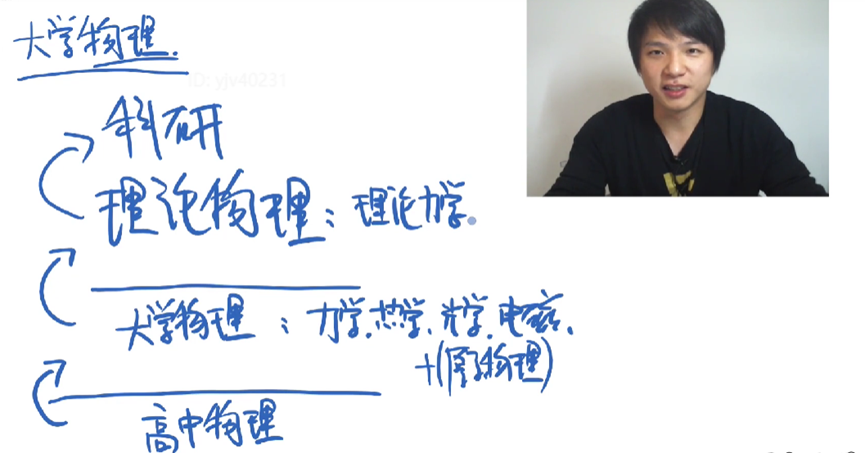 大学物理.
ID: yjv40231
科研
理论物理：理论力学。
大学物理：力学、热学、光学、电磁、
+(原子物理)
高中物理